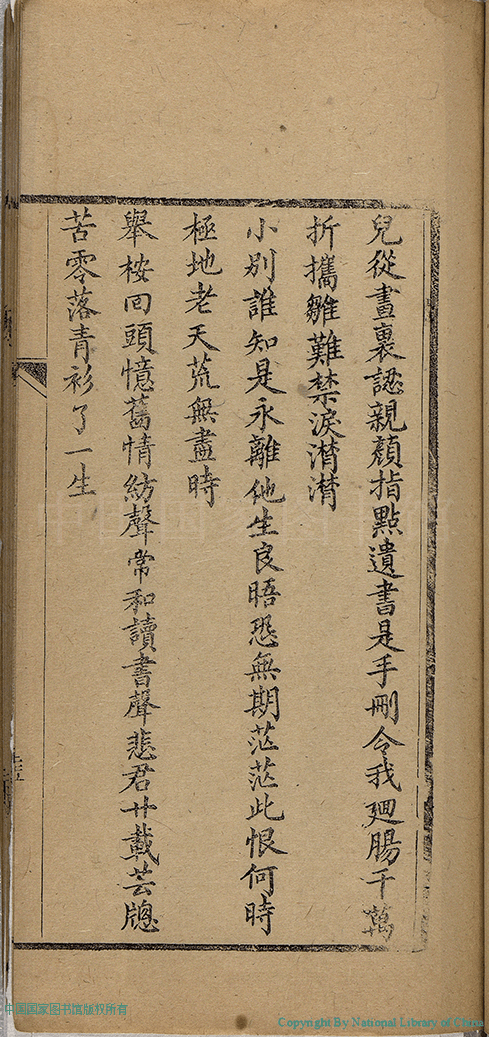 兒從畫裏認親顏指點遺書是手刪令我廻腸千萬
折攜雛難禁淚潸潸
小別誰知是永離他生良晤恐無期茫茫此恨何時
極地老天荒無盡時
舉桉回頭憶舊情紡聲常和讀書聲悲君廿載芸牕
苦零落青衫了一生
中国国家图书馆版权所有
Copyright By National Library of China